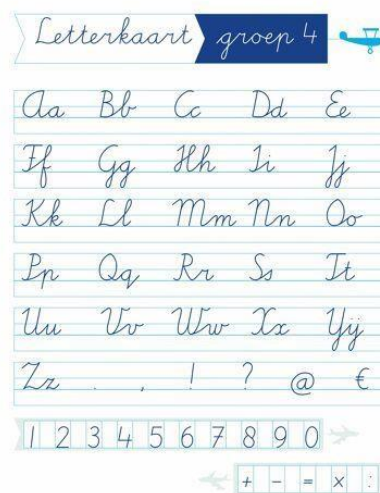 Letterkaart groep 4
Aa Bb Cc Dd Ee
Ff Gg Hh Ii Jj
Kk Ll Mm Nn Oo
Pp Qq Rr Ss Tt
Uu Vv Ww Xx Yij
Zz . , ! ? @ €
1 2 3 4 5 6 7 8 9 0
+ - = x :